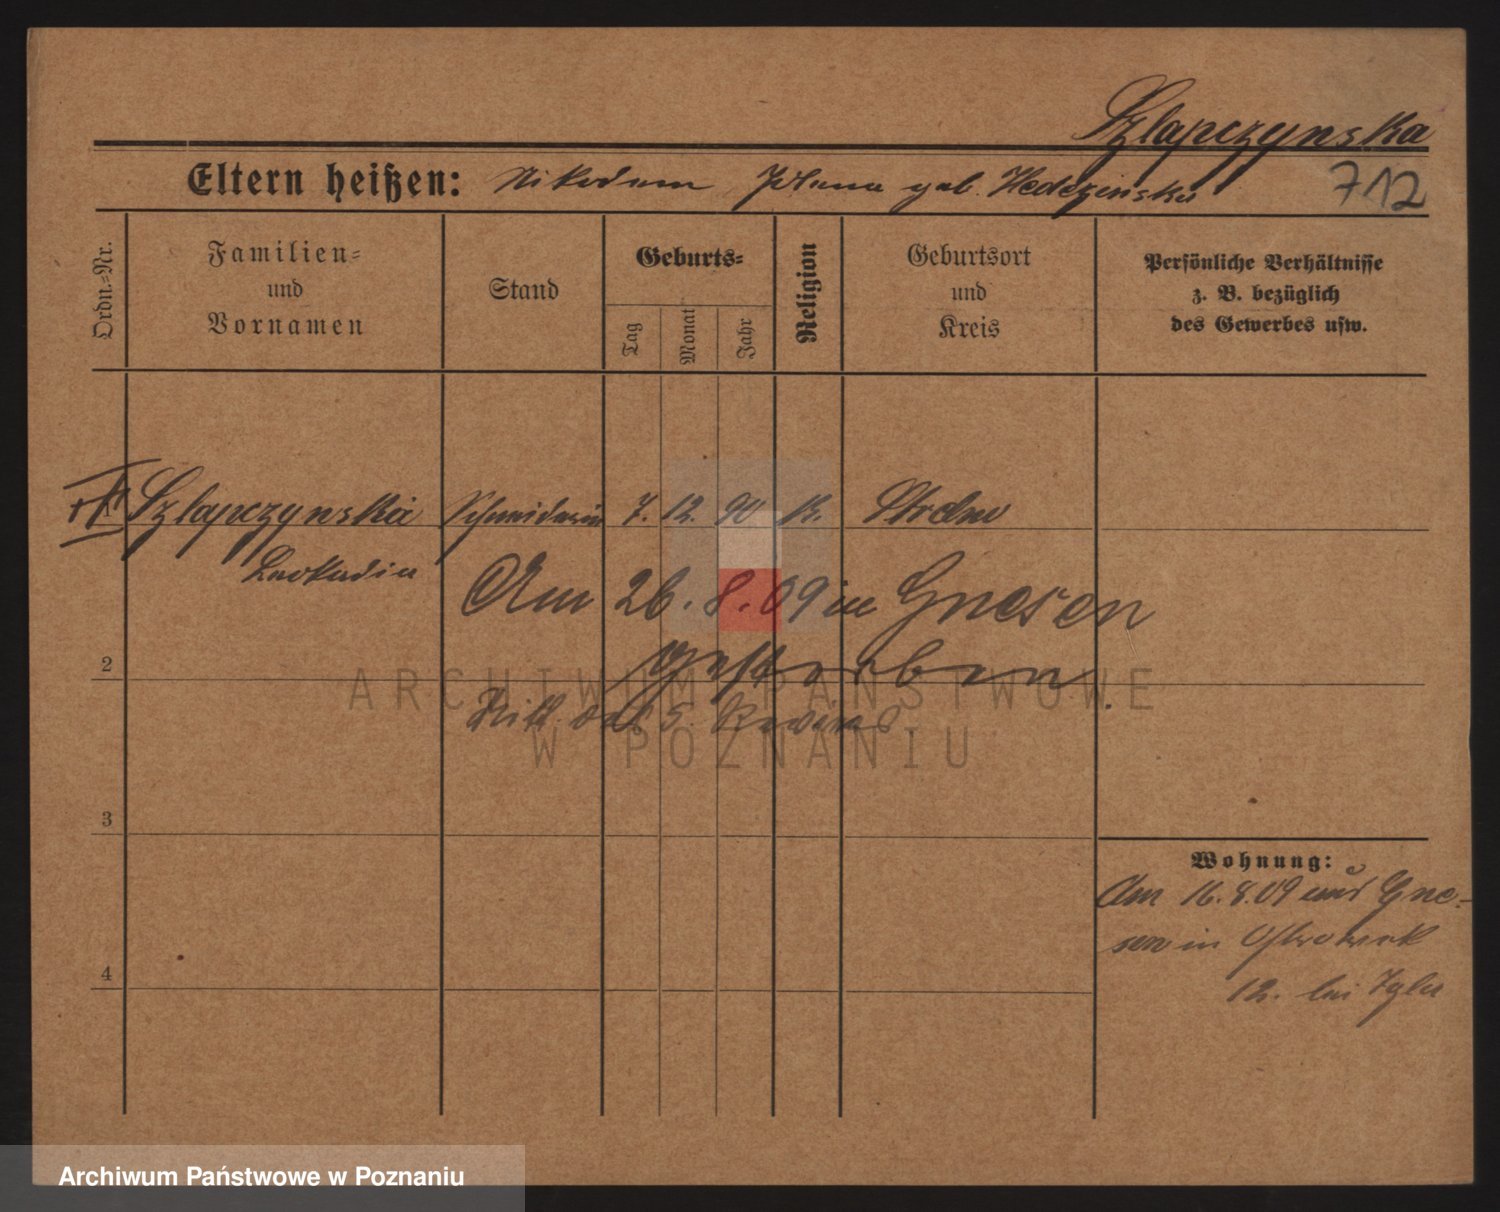 Szlapczynska
Eltern heißen: Nikodem geb.
712
Ordn.=Nr.
Familien=
und
Vornamen
Stand
Geburts=
Tag
Monat
Jahr
Religion
Geburtsort
und
Kreis
Persönliche Verhältnisse
z. B. bezüglich
des Gewerbes usw.
Szlapczynska Schneiderin 7. 12. 90 K.
Leokadia
Am 26. 8. 09 in Gnesen
gestorben
2
5. Reviers
ARCHIWUM PAŃSTWOWE
W POZNANIU
3
Wohnung:
Am 16. 8. 09 aus Gne-
sen in
4
12. bei
Archiwum Państwowe w Poznaniu